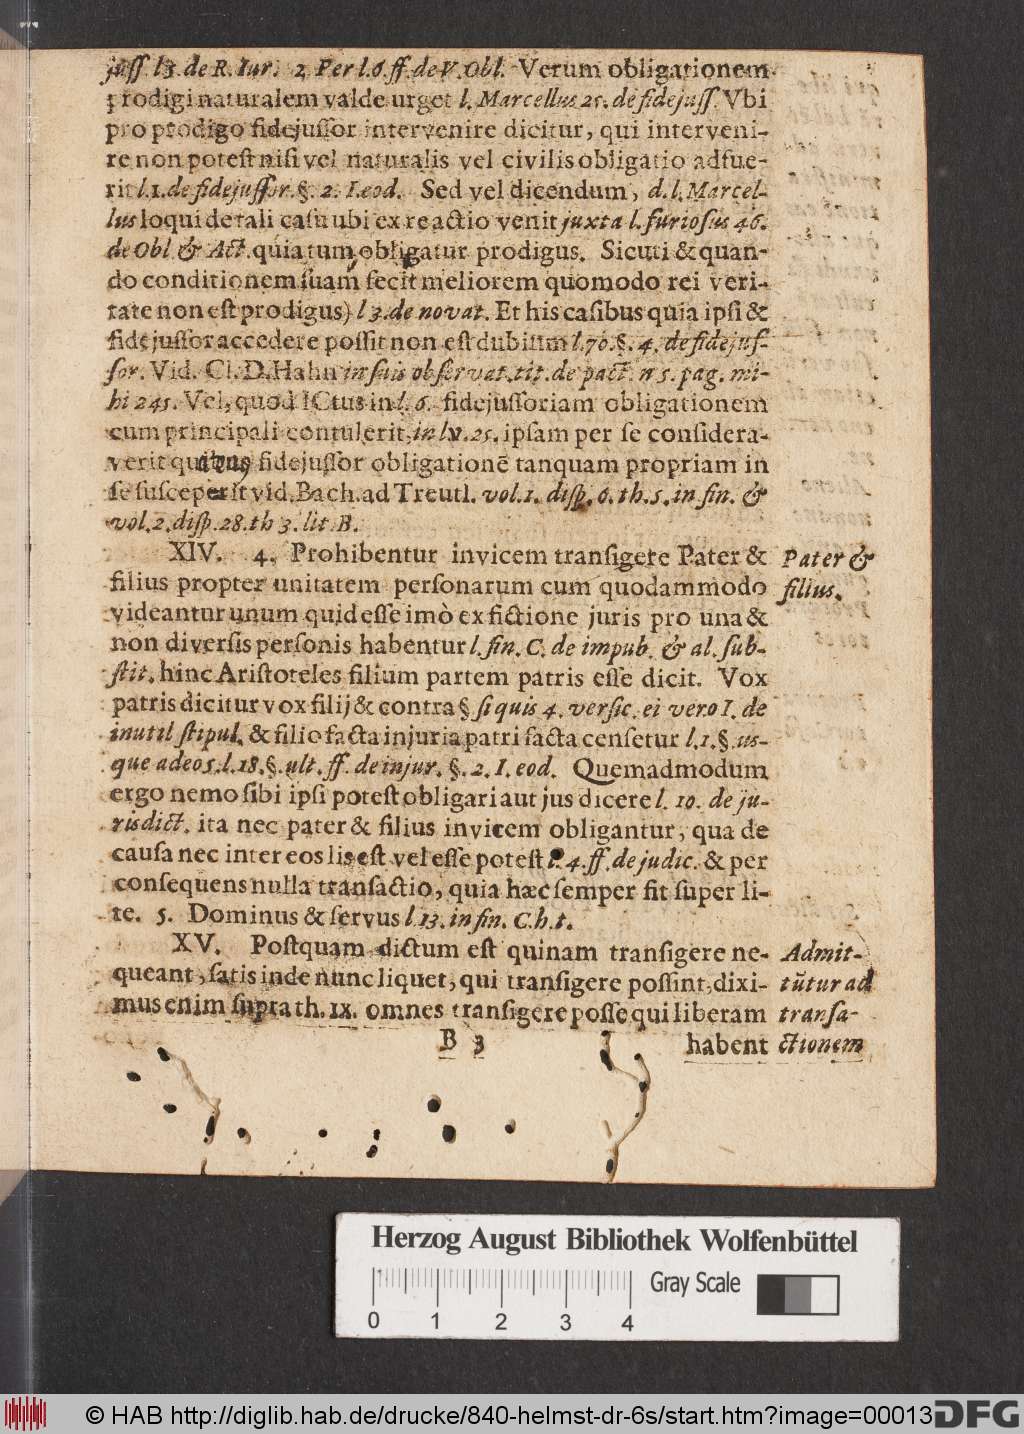 juſſ. l 3. de R. Iur. 2 Per l. 6. ff. de V. Obl. Verum obligationem
prodigi naturalem valde urget l. Marcellus 25. de fidejuſſ. Vbi
pro prodigo fidejuſſor intervenire dicitur, qui interveni-
re non poteſt niſi vel naturalis vel civilis obligatio adfue-
rit l. 1. de fidejuſſor. §. 2. I. eod. Sed vel dicendum, d. l. Marcel-
lus loqui de tali caſu ubi ex re actio venit juxta l. furioſus 46.
de Obl. & Act. quia tum obligatur prodigus. Sicuti & quan-
do conditionem ſuam fecit meliorem quomodo rei veri-
tate non eſt prodigus) l 3. de novat. Et his caſibus quia ipſi &
fidejuſſor accedere poſſit non eſt dubium l. 70. §. 4. de fidejuſ-
ſor. Vid. Cl. D. Hahn in ſuis obſervat. tit. de pact. n 5. pag. mi-
hi 245. Vel, quod ICtus in l. 6. fidejuſſoriam obligationem
cum principali contulerit, in l v. 25. ipſam per ſe conſidera-
verit quatenus fidejuſſor obligationē tanquam propriam in
ſe ſuſceperit vid. Bach. ad Treutl. vol. 1. diſp. 6. th. 5. in fin. &
vol. 2. diſp. 28. th 3. lit B.
XIV. 4. Prohibentur invicem tranſigere Pater & Pater &
filius propter unitatem perſonarum cum quodammodo filius.
videantur unum quid eſſe imò ex fictione juris pro una &
non diverſis perſonis habentur l. fin. C. de impub. & al. ſub-
ſtit. hinc Ariſtoteles filium partem patris eſſe dicit. Vox
patris dicitur vox filij & contra § ſi quis 4. verſic. ei vero I. de
inutil ſtipul. & filio facta injuria patri facta cenſetur l. 1. §. uſ-
que adeo 5. l. 18. §. ult. ff. de injur. §. 2. I. eod. Quemadmodum
ergo nemo ſibi ipſi poteſt obligari aut jus dicere l. 10. de ju-
risdict. ita nec pater & filius invicem obligantur, qua de
cauſa nec inter eos lis eſt vel eſſe poteſt l. 4. ff. de judic. & per
conſequens nulla tranſactio, quia hæc ſemper fit ſuper li-
te. 5. Dominus & ſervus l 13. in fin. C. h. t.
XV. Poſtquam dictum eſt quinam tranſigere ne- Admit-
queant, ſatis inde nunc liquet, qui tranſigere poſſint, dixi- tūtur ad
mus enim ſupra th. IX. omnes tranſigere poſſe qui liberam tranſa-
B 3 habent ctionem
Herzog August Bibliothek Wolfenbüttel
Gray Scale
0 1 2 3 4
© HAB http://diglib.hab.de/drucke/840-helmst-dr-6s/start.htm?image=00013 DFG